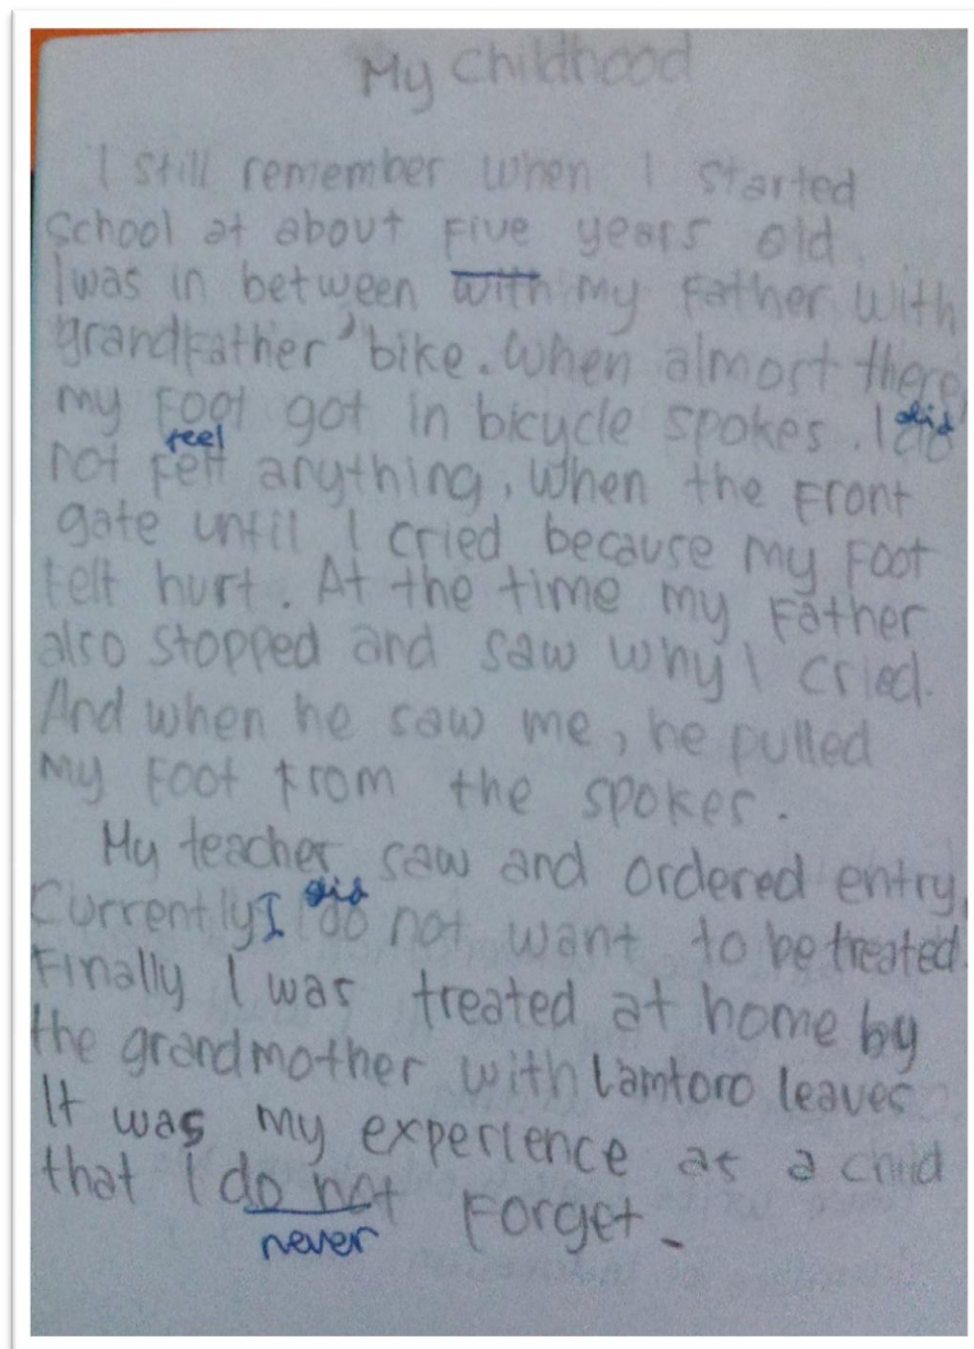 My Childhood
I still remember when I started
School at about Five years old.
I was in between with my Father with
grandFather' bike. When almort there,
my Foot got in bicycle spokes. I did
did
feel
not felt anything, When the Front
gate until I cried because my Foot
felt hurt. At the time my Father
also stopped and saw why I cried.
And when he saw me, he pulled
my Foot From the spokes.
My teacher saw and ordered entry,
Currently I do not want to be treated.
did
Finally I was treated at home by
the grandmother with Lamtoro leaves
It was my experience as a child
that I do not Forget.
never